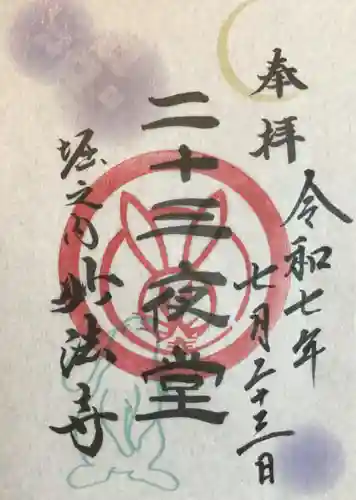 奉拝
令和七年
七月二十三日
二十三夜堂
堀之内
妙法寺